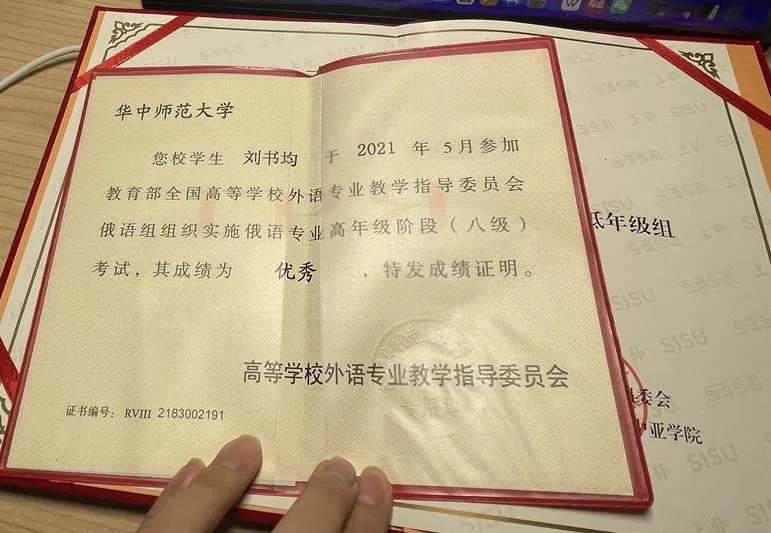 华中师范大学
您校学生 刘书均 于 2021 年 5月参加
教育部全国高等学校外语专业教学指导委员会
俄语组组织实施俄语专业高年级阶段（八级）
考试，其成绩为 优秀 ，特发成绩证明。
高等学校外语专业教学指导委员会
证书编号：RVIII 2183002191
低年级组
委会
中亚学院
SISU
SISU
SISU
SISU